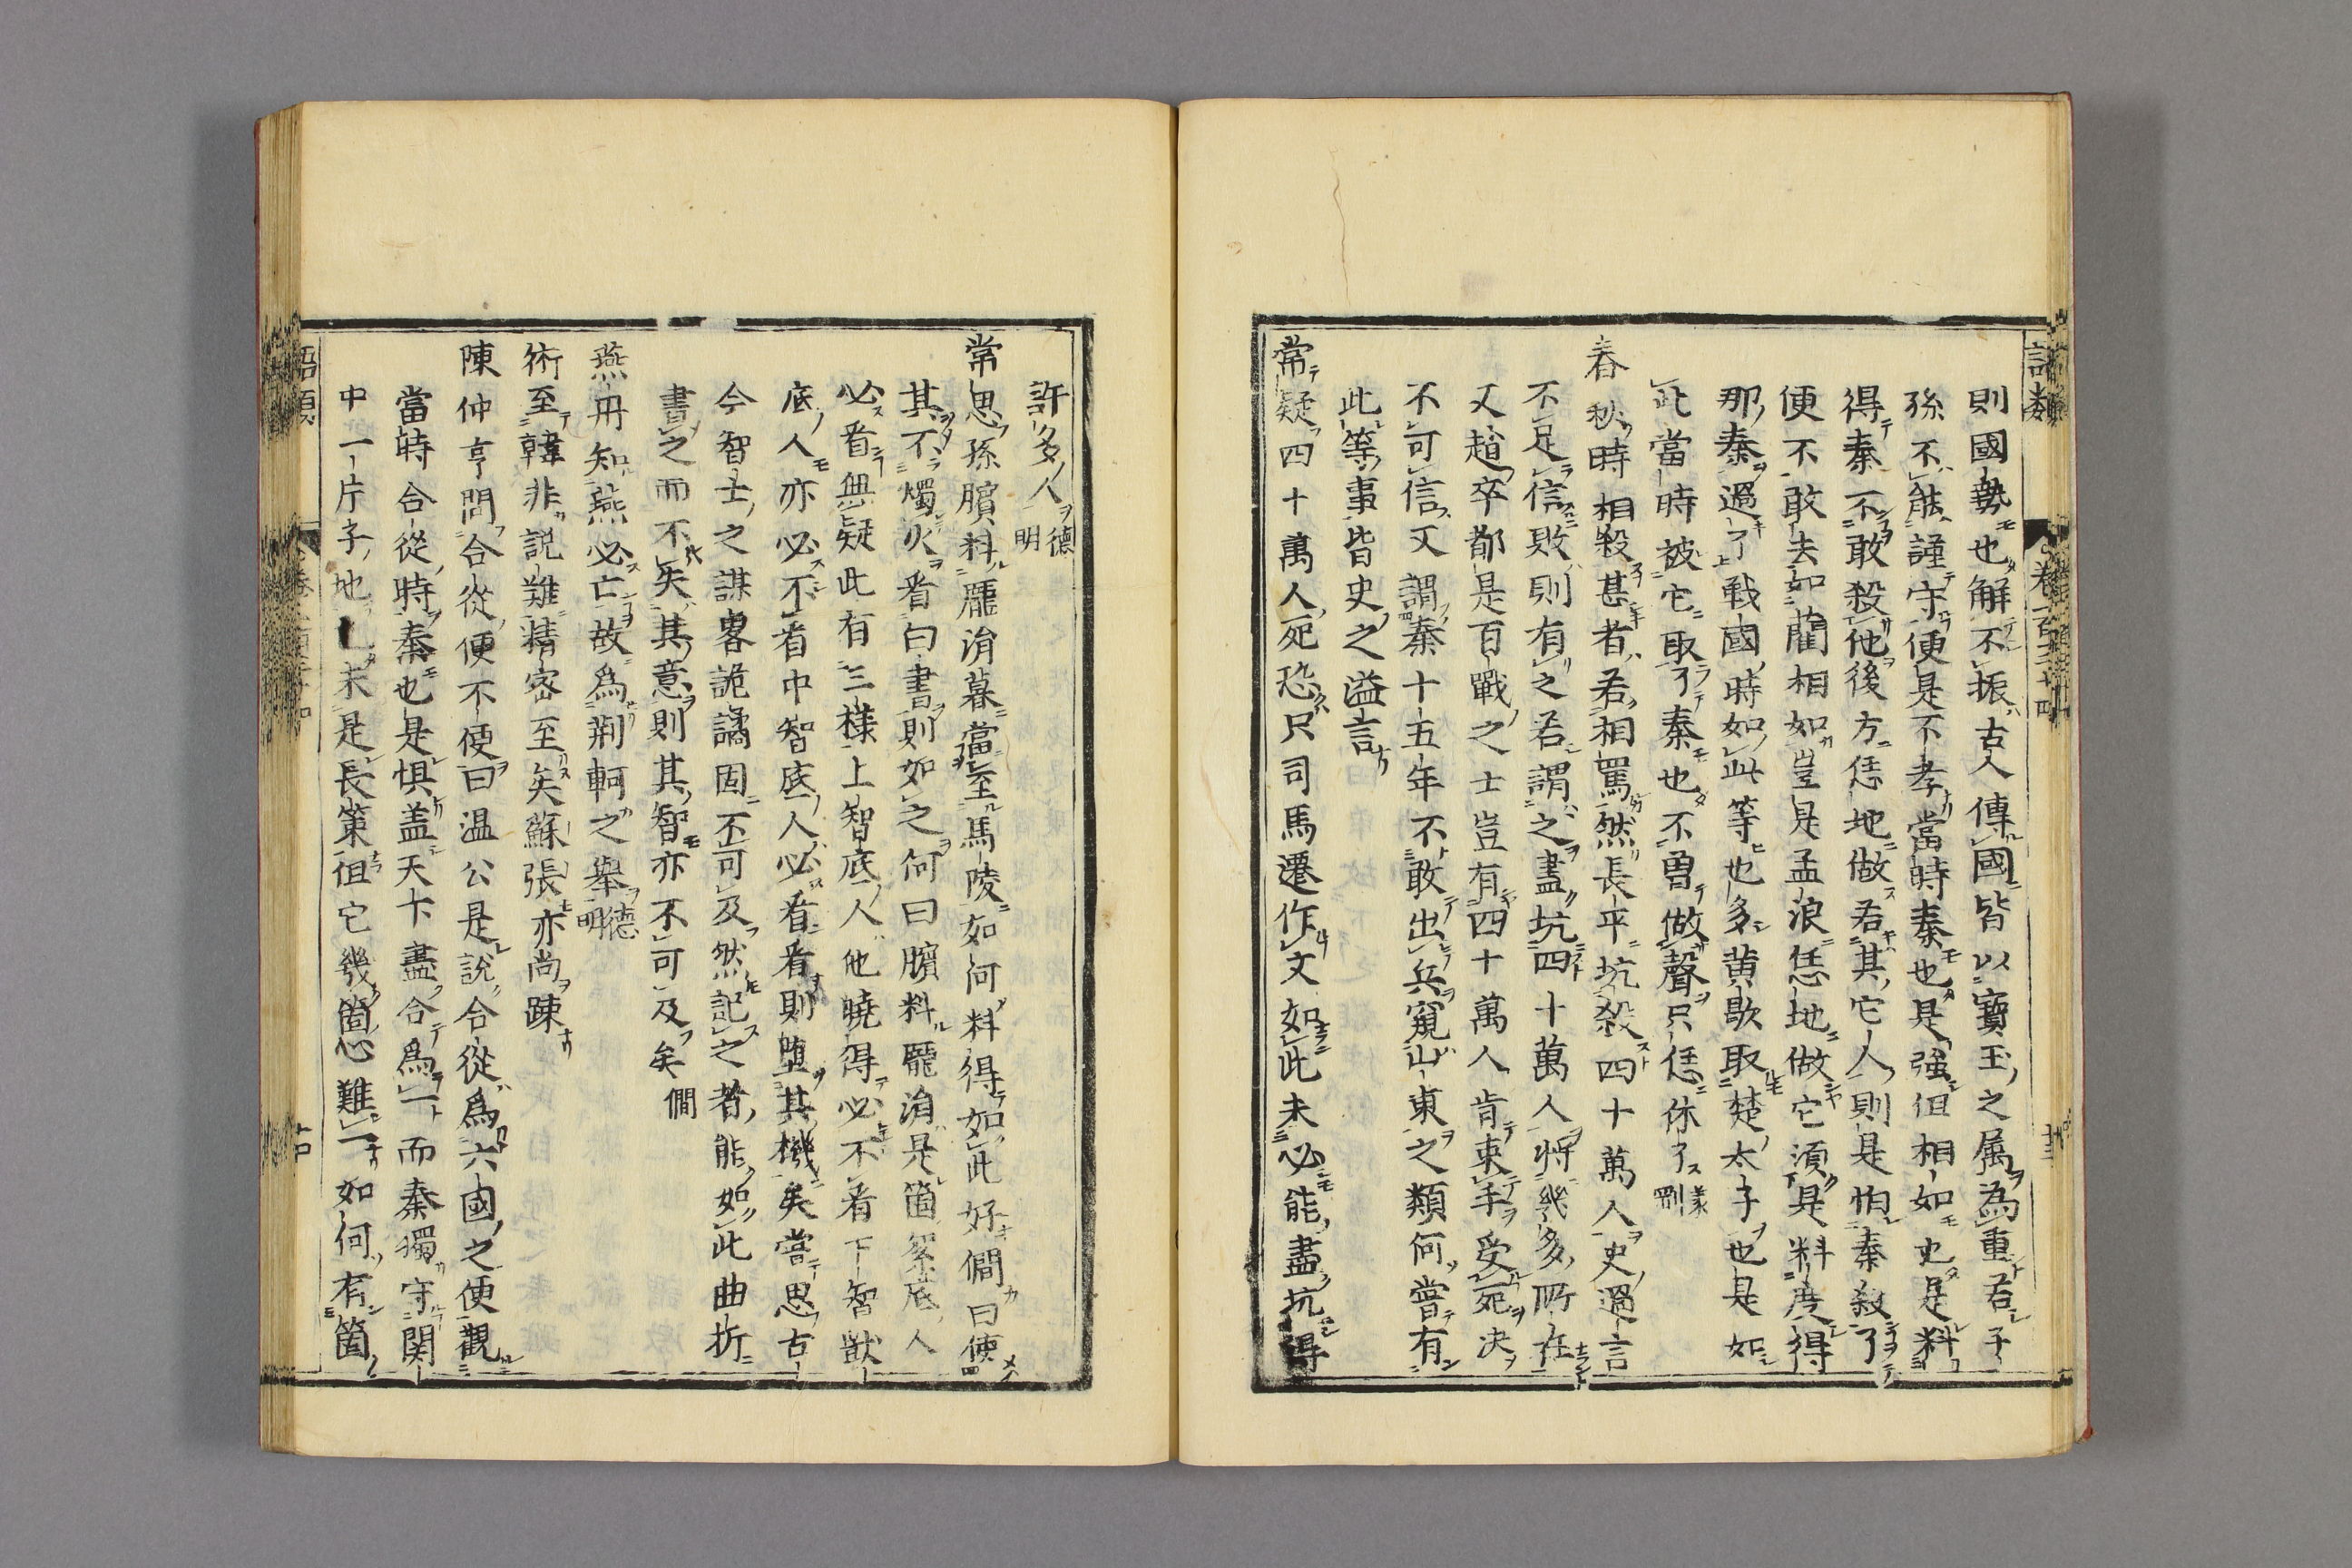 語類
卷一百三十四
則國勢也解不振古人傳國皆以寶玉之属為重若子
孫不能謹守便是不孝當時秦也是強但相如也是料
得秦不敢殺他後方恁地做若其它人則是怕秦殺了
便不敢去如藺相如豈是孟浪恁地做它須是料度得
那秦過了戰國時如此等也多黃歇取楚太子也是如
此當時被它取了秦也不曾做聲只恁休了義剛
春秋時相殺甚者若相罵然長平坑殺四十萬人史過言
不足信敗則有之若謂之盡坑四十萬人將幾多所在
又趙卒都是百戰之士豈有四十萬人肯束手受死决
不可信又謂秦十五年不敢出兵窺山東之類何嘗有
此等事皆史之溢言
常疑四十萬人死恐只司馬遷作文如此未必能盡坑得
許多人德明
常思孫臏料龐涓暮當至馬陵如何料得如此好僩曰使
其不燭火看白書則如之何曰臏料龐涓是箇絮底人
必看無疑此有三樣上智底人他曉得必不看下智獃
底人亦必不看中智底人必看看則墮其機矣嘗思古
今智士之謀畧詭譎固不可及然記之者能如此曲折
書之而不失其意則其智亦不可及矣僩
燕丹知燕必亡故為荆軻之舉德明
術至韓非說難精密至矣蘇張亦尚踈
陳仲亨問合從便不便曰温公是說合從為六國之便觀
當時合從時秦也是惧盖天下盡合為一而秦獨守関
中一片子地也未是長策但它幾箇心難一如何有箇
語類